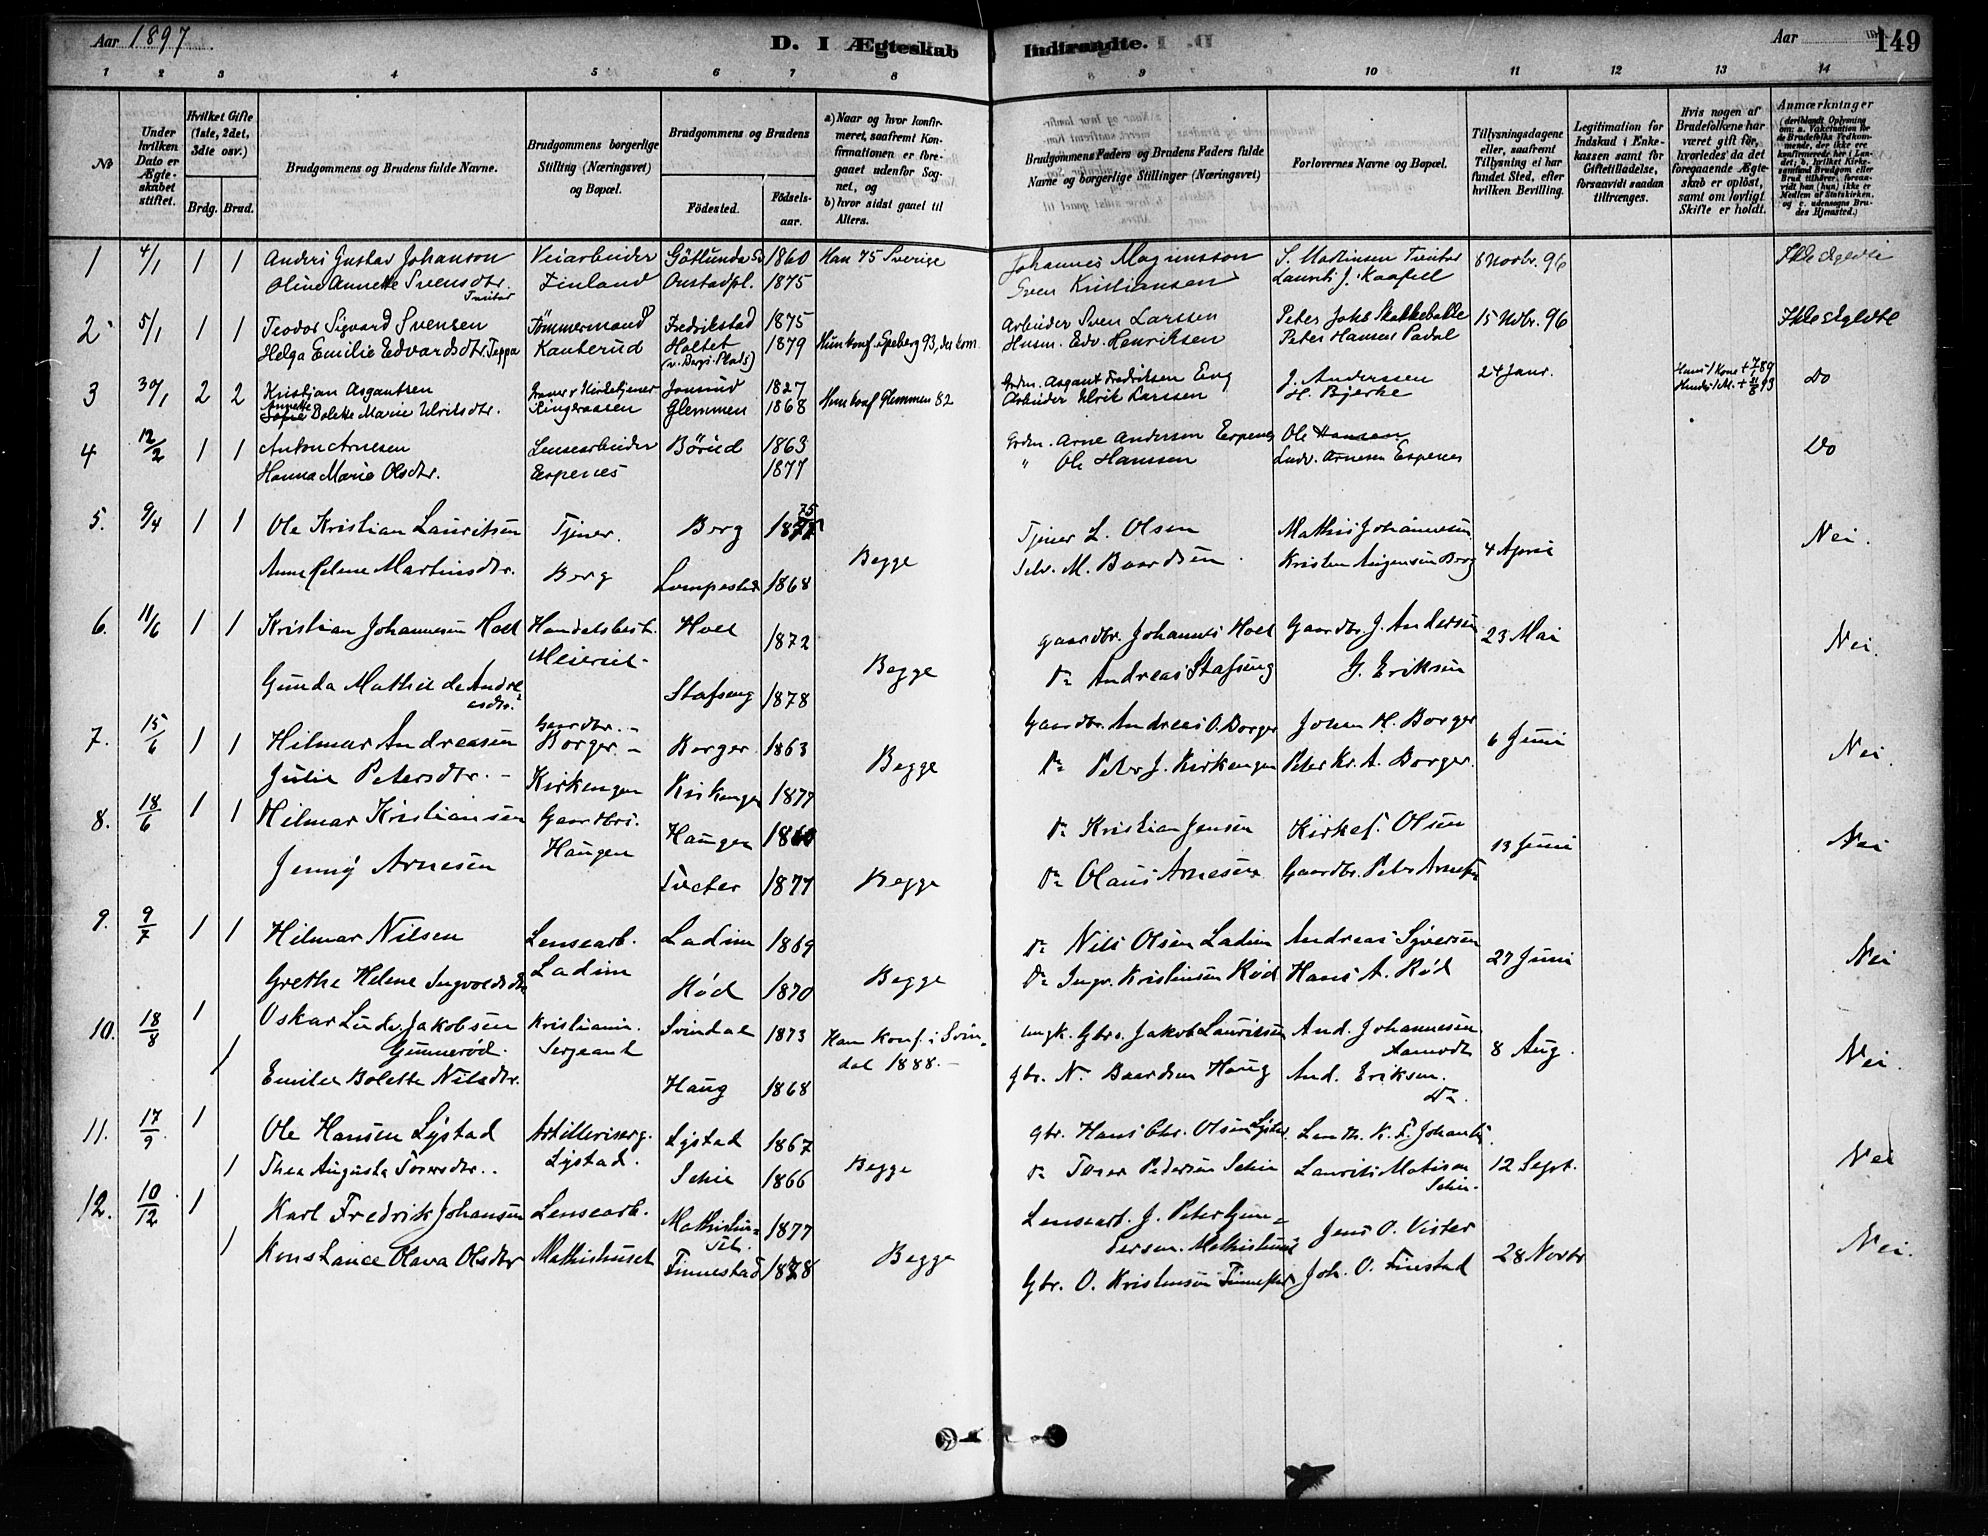 Aar 1897
D. I Ægteskab Indtraadte.
Aar
149
1 2 3 4 5 6 7 8 9 10 11 12 13 14
No
Under hvilken Dato er Ægteskabet stiftet.
Hvilket Gifte (1ste, 2det, 3die osv.)
Brdg. Brud.
Brudgommens og Brudens fulde Navne.
Brudgommens borgerlige Stilling (Næringsvei) og Bopæl.
Brudgommens og Brudens
Fødested.
Fødselsaar.
a) Naar og hvor konfirmeret, saafremt Konfirmationen er foregaaet udenfor Sognet, og
b) hvor sidst gaaet til Alters.
Brudgommens Faders og Brudens Faders fulde Navne og borgerlige Stillinger (Næringsvei)
Forlovernes Navne og Bopæl.
Tillysningsdagene eller, saafremt Tillysning ei har fundet Sted, efter hvilken Bevilling.
Legitimation for Indskud i Enkekassen samt for Giftetilladelse, forsaavidt saadan tiltrænges.
Hvis nogen af Brudefolkene har været gift før, hvorledes da det foregaaende Ægteskab er opløst, samt om lovligt Skifte er holdt.
Anmærkninger (deriblandt Oplysning om: a. Vakcination for de Brudefolks Vedkommende, der ikke ere konfirmerede her i Landet; b. hvilket Kirkesamfund Brudgom eller Brud tilhører, forsaavidt han (hun) ikke er Medlem af Statskirken, og c. udensogns Brudes Hjemsted.)
1 4/1 1 1 Anders Gustav Johanson Veiarbeider Götlunda Sv 1860 Han 75 Sverige Johannes Magnusson S. Martinsen Tveiter 8 Novbr. 96 Ikke skyldte
Oline Annette Svensdtr. Finland Onstadpl. 1875 Sven Kristiansen Laurits J. Kaafjell
Tveiter
2 5/1 1 1 Teodor Sigvard Svensen Tømmermand Fredrikstad 1875 Arbeider Sven Larssen Peter Johs Skakkebakke 15 Nvbr. 96 Ikke skyldte
Helga Emilie Edvardsdtr. Teppa Kanterud Holtet 1879 Hun konf. Speberg 93, der kom. Husm. Edv. Henriksen Peter Hansen
3 30/1 2 2 Kristian Asgautsen Graver & Kirketjener Jonsrud 1827 Hun konf Glemmen 82 Grdm. Asgaut Fredriksen Eng J. Anderssen 24 Janr. Do
Annette Bolette Marie Ulriksdtr. Ringeraasen Glemmen 1868 Arbeider Ulrik Larssen H. Bjerke
4 12/2 1 1 Anton Arnesen Lensearbeider Börud 1863 Grdm. Arne Andersen Espenes Ole Hansen Do
Hanna Marie Olsdtr. Espenes 1877 " Ole Hanssen Ludv. Arnesen Espenes
5. 9/4 1 1 Ole Kristian Lauritsen Tjener. Berg 1875 Tjener L. Olsen Mathis Johannesen 4 April Nei.
Anne Helene Martinsdtr. Berg 1868 Begge Selv. M. Baardsen Kristen Borg
6. 11/6 1 1 Kristian Johannesen Hoel Handelsbest. Hoel 1872 Gaardbr. Johannes Hoel Gaardbr J. Andersen 23 Mai Nei.
Gunda Mathilde Andreasdtr. Meieriet Stafseng 1878 Begge Do Andreas Stafseng G. Eriksen
7. 15/6 1 1 Hilmar Andreasen Gaardbr. Borger Borger 1863 Begge Gaardbr. Andreas O. Borger Johan H. Borger 6 Juni Nei.
Julie Petersdtr. Kirkengen Kirkengen 1877 Do Peter J. Kirkengen Peter Kr. A. Borger.
8. 18/6 1 1 Hilmar Kristiansen Gaardbr. Haugen Haugen 1860 Do Kristian Jensen Kirkes. Olsen 13 Juni Nei
Jenny Arnesen Tveter 1877 Begge Do Olaus Arnesen Gaardbr. Peter Arnesen
9. 9/7 1 1 Hilmar Nilsen Lensearb. Ladim 1869 Do Nils Olsen Ladim Andreas Syversen 27 Juni Nei
Grethe Helene Ingvoldsdtr Ladim Rød 1870 Begge Do Ingv. Kristensen Rød Hans A. Rød
10. 18/8 1 Oskar Ludv. Jakobsen Kristiania. Svindal 1873 Han konf. i Svindal 1888. Ungk. Gbr. Jakob Lauritsen And. Johannesen 8 Aug. Nei.
Gunnerød. Sergeant Aamodt
1 Emilie Bolette Nilsdtr. Haug 1868 Gbr. N. Baardsen Haug And. Eriksen. Do.
11. 17/9 1 Ole Hansen Lystad Artilleriserg. Lystad 1867 Gbr. Hans Chr. Olsen Lystad 12 Sept. Nei
1 Thea Augusta Torersdtr. Lystad. Schie 1866 Begge Do Torer Pedersen Schie Laurits Matisen Schie.
12. 10/12 1 Karl Fredrik Johansen Lensearb. Mathishuset. 1877 Lensearb. J. Peter Gundersen. Mathishuset Jens O. Vister 28 Novbr Nei.
1 Konstance Olava Olsdtr Mathishuset Finnestad 1878 Begge Gbr. O. Kristensen Finnestad Joh. O. Finstad